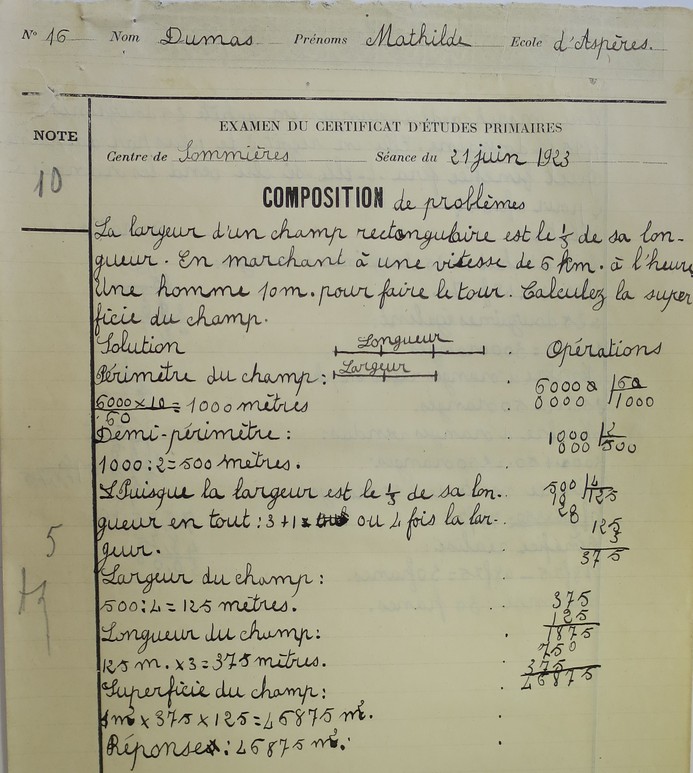 N° 16 Nom Dumas Prénoms Mathilde Ecole d'Aspères.
NOTE
10
EXAMEN DU CERTIFICAT D'ÉTUDES PRIMAIRES
Centre de Sommières Séance du 21 juin 1923
COMPOSITION de problèmes
La largeur d'un champ rectangulaire est le 1/3 de sa lon-
gueur. En marchant à une vitesse de 6 Km. à l'heure
Une homme 10m. pour faire le tour. Calculez la super
ficie du champ.
Solution Longueur Opérations
Périmètre du champ: Largeur
6000 x 10 / 60 = 1000 mètres
60000 | 60
0000 | 1000
Demi-périmètre:
1000 | 2
000 | 500
1000 : 2 = 500 mètres.
Puisque la largeur est le 1/3 de sa lon-
500 | 4
10 | 125
20
gueur en tout : 3 + 1 ou 4 fois la lar-
gueur.
125
3
375
5
Largeur du champ:
500 : 4 = 125 mètres.
Longueur du champ:
125 m. x 3 = 375 mètres.
375
125
1875
750
375
46875
Superficie du champ:
1m² x 375 x 125 = 46875 m².
Réponse : 46875 m².